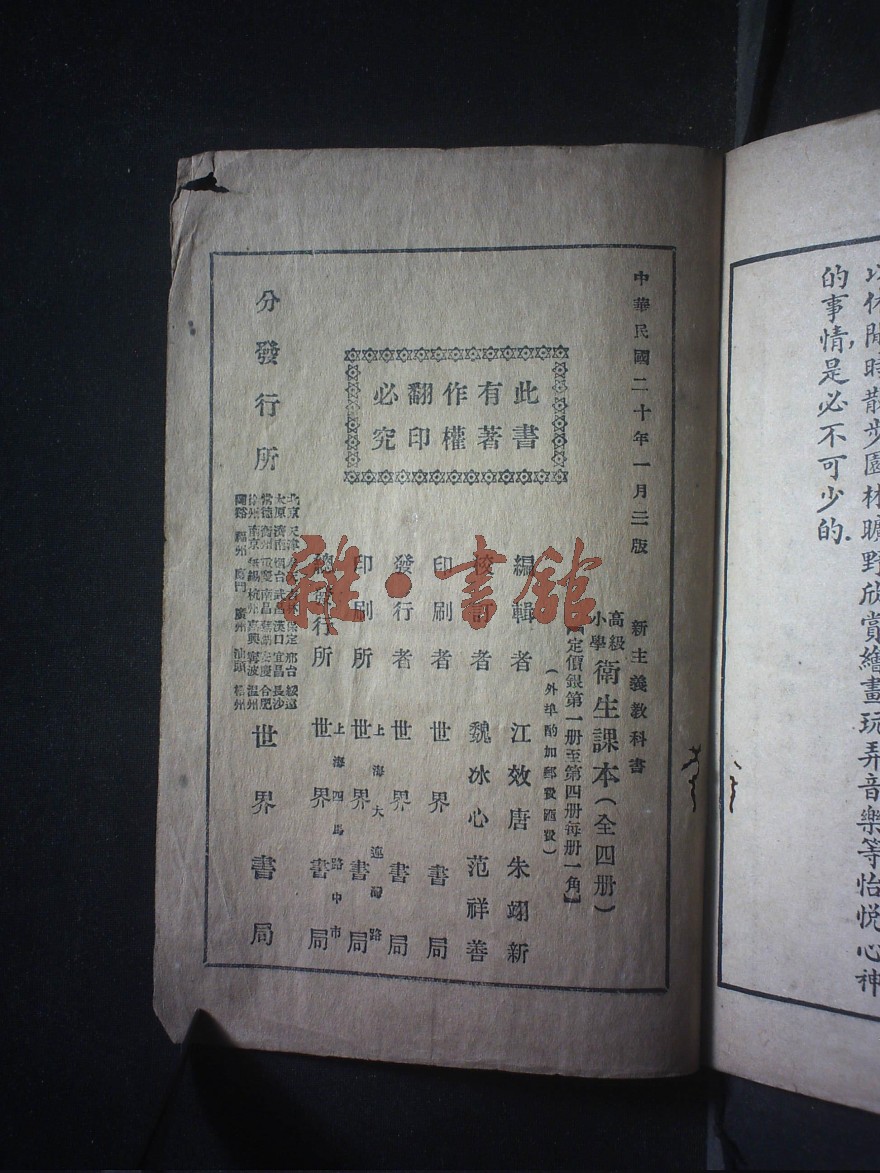 以休閒時散步園林曠野欣賞繪畫玩弄音樂等怡悅心神
的事情,是必不可少的.
中華民國二十年一月三版
新主義教科書
高級小學 衛生課本(全四册)
定價銀第一册至第四册每册一角】
(外埠酌加郵費匯費)
此書
有著
作權
翻印
必究
編輯者 江效唐 朱翊新
校訂者 魏冰心 范祥善
印刷者 世界書局
發行者 世界書局
印刷所 上海大連灣路 世界書局
總發行所 上海四馬路中市 世界書局
分發行所
世界書局
雜·書館